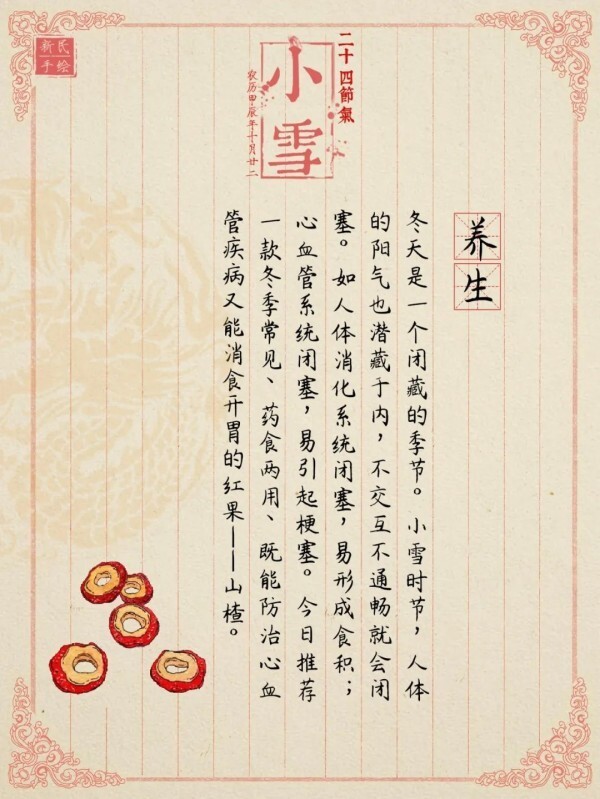 新民
手绘
二十四節氣
小雪
农历甲辰年十月廿二
养生
冬天是一个闭藏的季节。小雪时节，人体
的阳气也潜藏于内，不交互不通畅就会闭
塞。如人体消化系统闭塞，易形成食积；
心血管系统闭塞，易引起梗塞。今日推荐
一款冬季常见、药食两用、既能防治心血
管疾病又能消食开胃的红果——山楂。